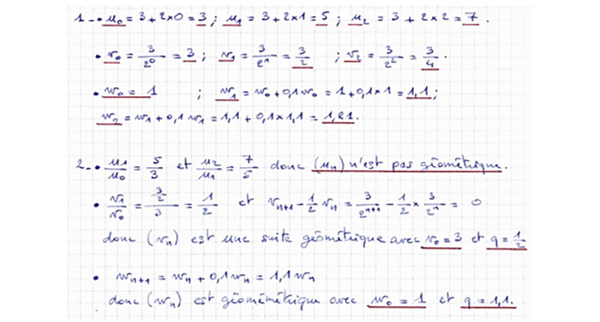 1-• u₀ = 3 + 2×0 = 3 ; u₁ = 3 + 2×1 = 5 ; u₂ = 3 + 2×2 = 7.
• v₀ = 3/2⁰ = 3 ; v₁ = 3/2¹ = 3/2 ; v₂ = 3/2² = 3/4.
• w₀ = 1 ; w₁ = w₀ + 0,1w₀ = 1 + 0,1×1 = 1,1 ;
w₂ = w₁ + 0,1w₁ = 1,1 + 0,1×1,1 = 1,21.
2-• u₁/u₀ = 5/3 et u₂/u₁ = 7/5 donc (uₙ) n'est pas géométrique.
• v₁/v₀ = (3/2)/3 = 1/2 et vₙ₊₁ - 1/2 vₙ = 3/2ⁿ⁺¹ - 1/2 × 3/2ⁿ = 0
donc (vₙ) est une suite géométrique avec v₀ = 3 et q = 1/2
• wₙ₊₁ = wₙ + 0,1wₙ = 1,1wₙ
donc (wₙ) est géométrique avec w₀ = 1 et q = 1,1.